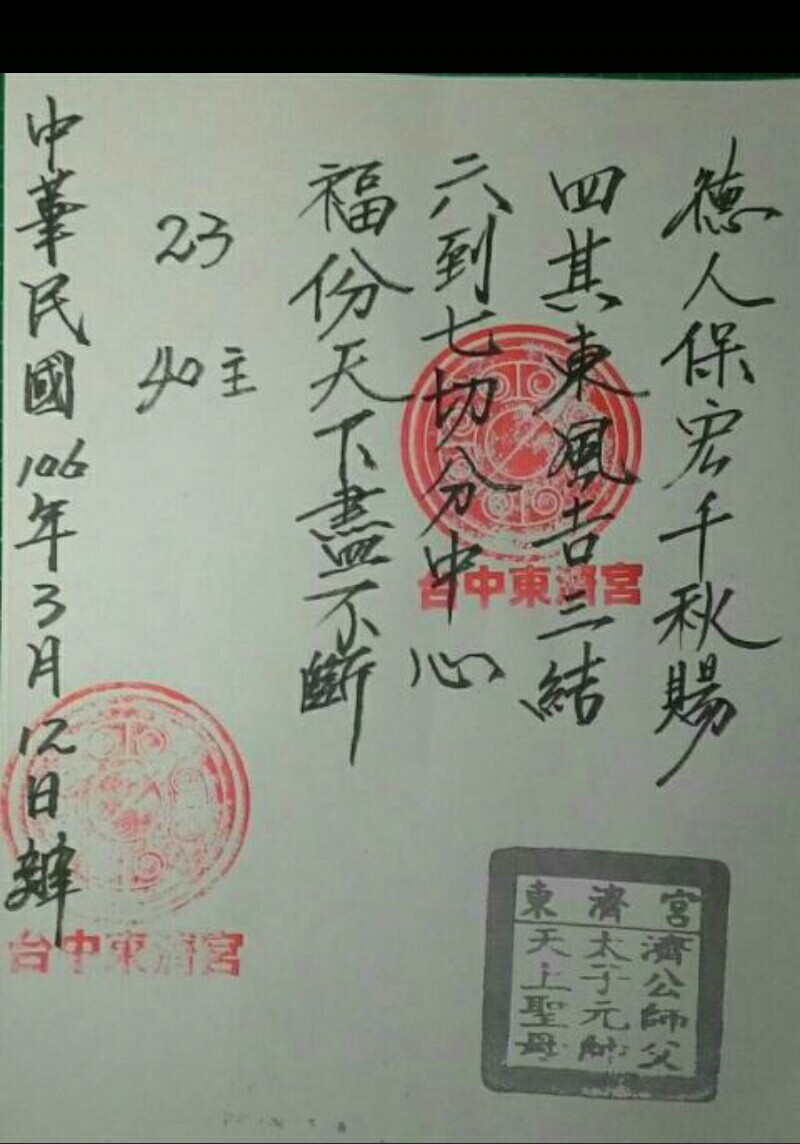 德人保宏千秋賜
四其東風吉三結
六到七切分中心
福份天下盡不斷
23
40主
中華民國106年3月12日
台中東濟宮
台中東濟宮
東濟宮
濟公師父
太子元帥
天上聖母